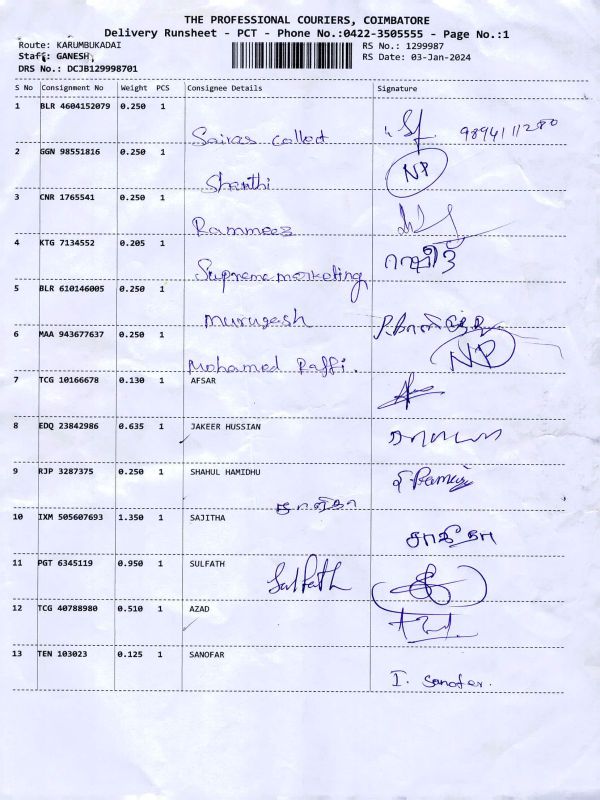 THE PROFESSIONAL COURIERS, COIMBATORE
Delivery Runsheet - PCT - Phone No.:0422-3505555 - Page No.:1
Route: KARUMBUKADAI RS No.: 1299987
Staff: GANESH, RS Date: 03-Jan-2024
DRS No.: DCJB129998701
S No Consignment No Weight PCS Consignee Details Signature
1 BLR 4604152079 0.250 1
Sairas collect
2 GGN 98551816 0.250 1 NP
Shanthi
3 CNR 1765541 0.250 1
Rammeez
4 KTG 7134552 0.205 1
Supreme marketing
5 BLR 610146005 0.250 1
Murugesh
6 MAA 943677637 0.250 1 NP
Mohamed Raffi.
7 TCG 10166678 0.130 1 AFSAR
8 EDQ 23842986 0.635 1 JAKEER HUSSIAN
9 RJP 3287375 0.250 1 SHAHUL HAMIDHU
10 IXM 505607693 1.350 1 SAJITHA
சாகிதா
11 PGT 6345119 0.950 1 SULFATH
Sulfath
12 TCG 40788980 0.510 1 AZAD
13 TEN 103023 0.125 1 SANOFAR
I. Sanofer.